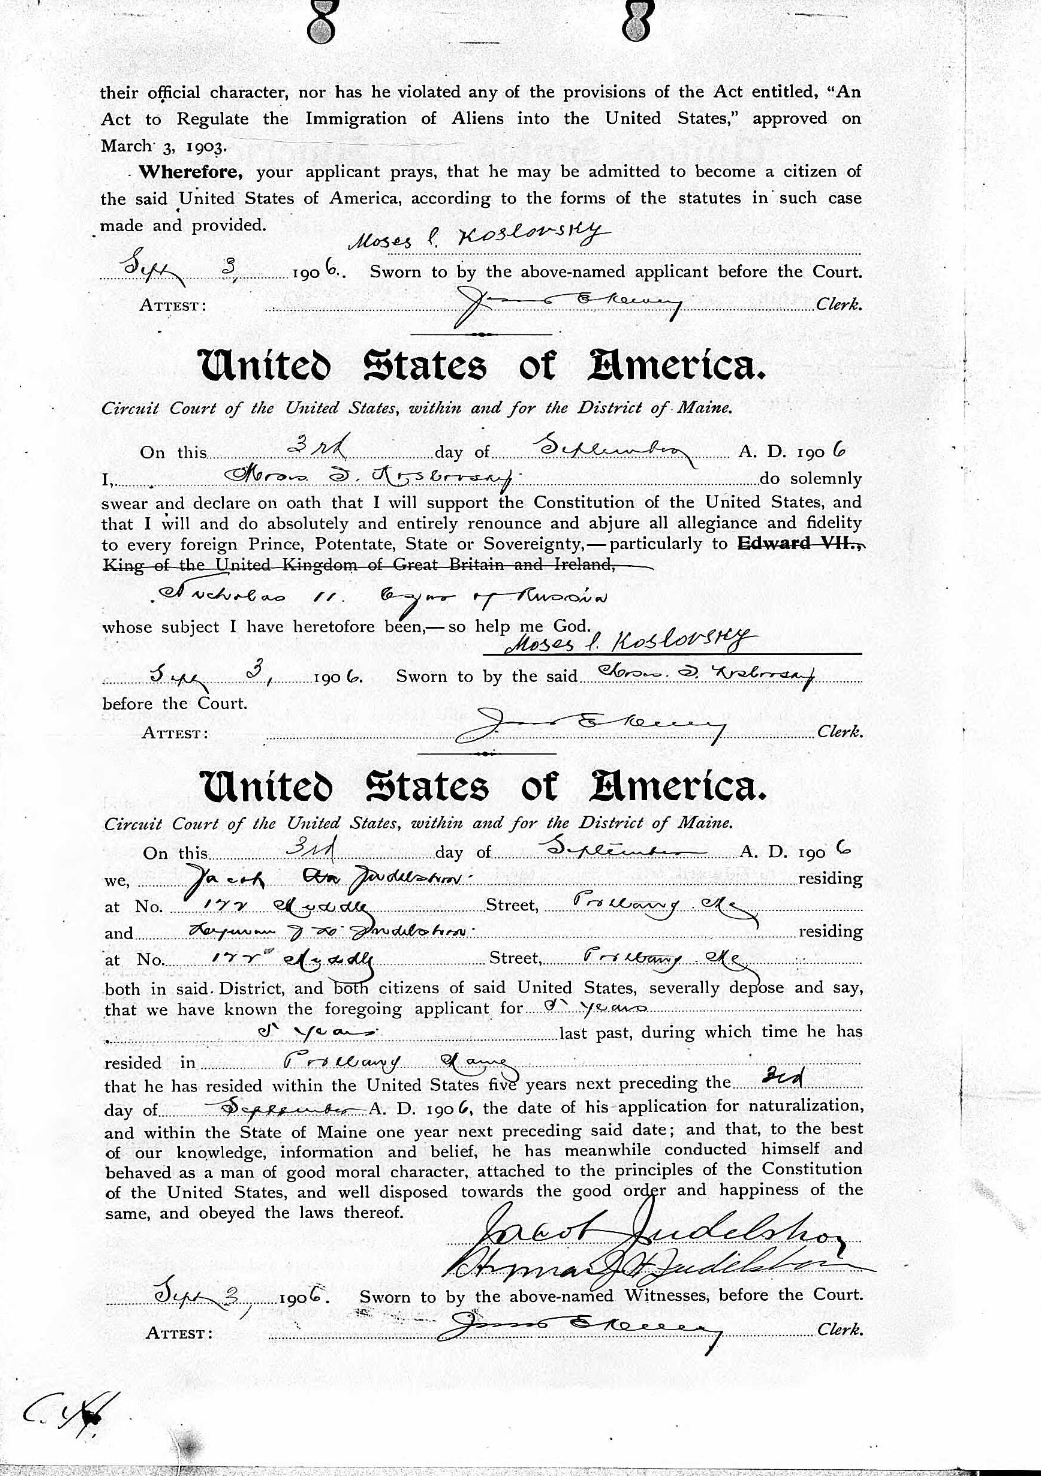 their official character, nor has he violated any of the provisions of the Act entitled, “An
Act to Regulate the Immigration of Aliens into the United States,” approved on
March 3, 1903.
Wherefore, your applicant prays, that he may be admitted to become a citizen of
the said United States of America, according to the forms of the statutes in such case
made and provided.
Moses I. Koslovsky
Sept 3, 1906. Sworn to by the above-named applicant before the Court.
ATTEST: Clerk.
United States of America.
Circuit Court of the United States, within and for the District of Maine.
On this 3rd day of September A. D. 1906
I, Moses I. Koslovsky do solemnly
swear and declare on oath that I will support the Constitution of the United States, and
that I will and do absolutely and entirely renounce and abjure all allegiance and fidelity
to every foreign Prince, Potentate, State or Sovereignty,—particularly to Edward VII.,
King of the United Kingdom of Great Britain and Ireland,
Nicholas II. Czar of Russia
whose subject I have heretofore been,—so help me God.
Moses I. Koslovsky
Sept 3, 1906. Sworn to by the said Moses I. Koslovsky
before the Court.
ATTEST: Clerk.
United States of America.
Circuit Court of the United States, within and for the District of Maine.
On this 3rd day of September A. D. 1906
we, Jacob Judelshon residing
at No. Middle Street, Portland Me
and Hyman J H Judelshon residing
at No. Middle Street, Portland Me
both in said District, and both citizens of said United States, severally depose and say,
that we have known the foregoing applicant for 5 years
5 years last past, during which time he has
resided in Portland Maine
that he has resided within the United States five years next preceding the 3rd
day of September A. D. 1906, the date of his application for naturalization,
and within the State of Maine one year next preceding said date; and that, to the best
of our knowledge, information and belief, he has meanwhile conducted himself and
behaved as a man of good moral character, attached to the principles of the Constitution
of the United States, and well disposed towards the good order and happiness of the
same, and obeyed the laws thereof.
Jacob Judelshon
Hyman J H Judelshon
Sept 3, 1906. Sworn to by the above-named Witnesses, before the Court.
ATTEST: Clerk.